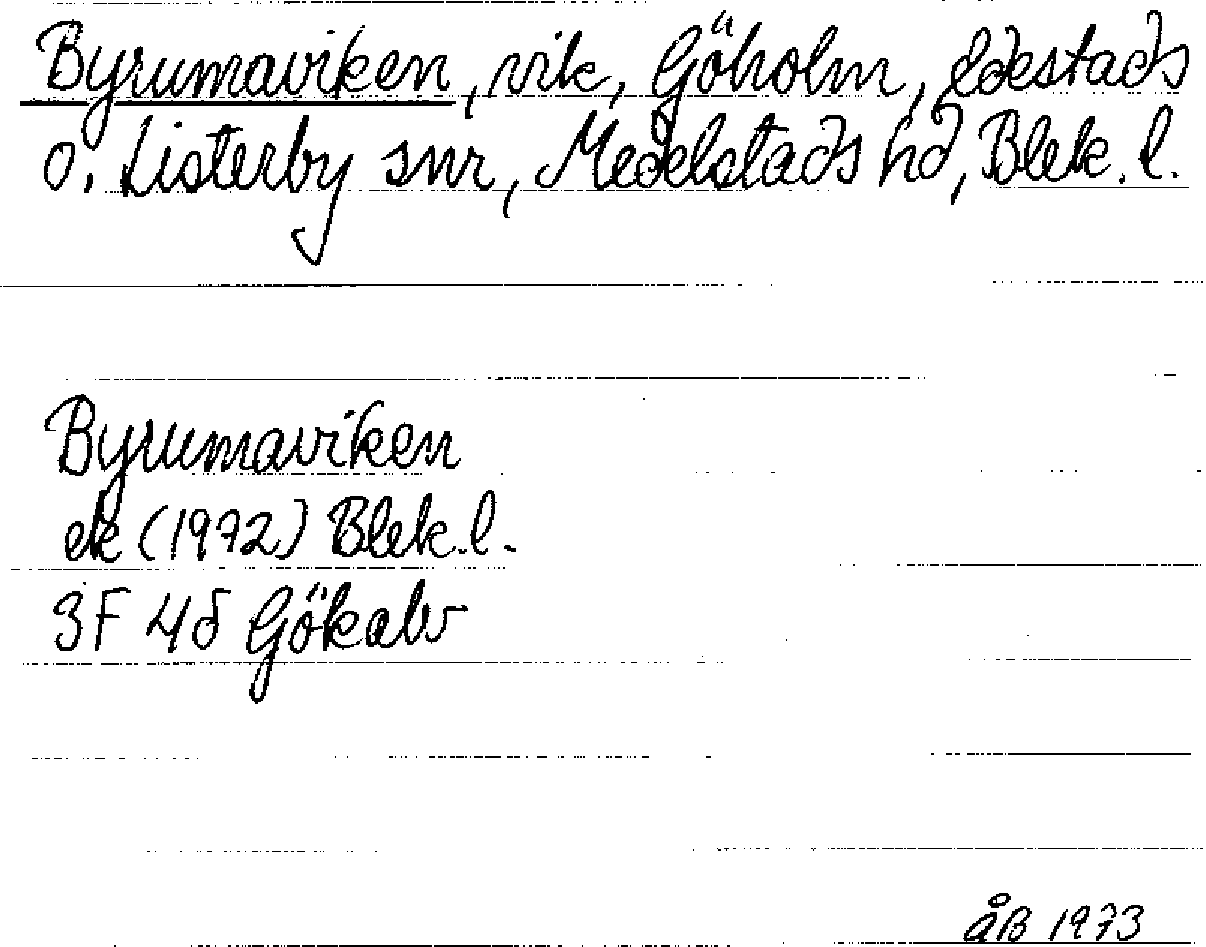 Byrumaviken, vik, Göholm, Edestads
o. Listerby snr, Medelstads hd, Blek. l.
Byrumaviken
ek (1972) Blek. l.
3F 4d Gökalv
åB 1973